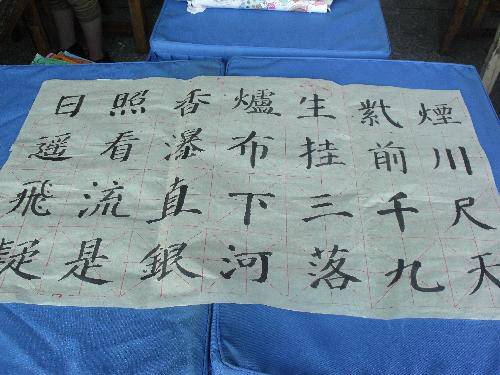 日照香爐生紫煙
遥看瀑布挂前川
飛流直下三千尺
疑是銀河落九天